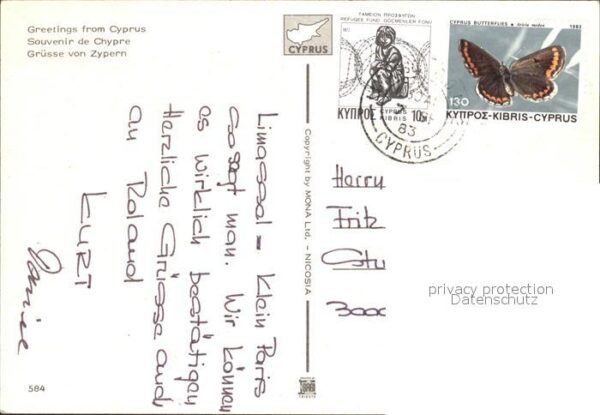 Greetings from Cyprus
Souvenir de Chypre
Grüsse von Zypern
CYPRUS
ΤΑΜΕΙΟΝ ΠΡΟΣΦΥΓΩΝ
REFUGEE FUND GÖÇMENLER FONU
1977
CYPRUS
KIBRIS
ΚΥΠΡΟΣ 10
CYPRUS BUTTERFLIES 1983
130
ΚΥΠΡΟΣ-KIBRIS-CYPRUS
83
CYPRUS
Limassol = Klein Paris
so sagt man. Wir können
es wirklich bestätigen
Herzliche Grüsse auch
an Roland
KURT
Copyright by MONA Ltd. - NICOSIA
Fritz
privacy protection
Datenschutz
584